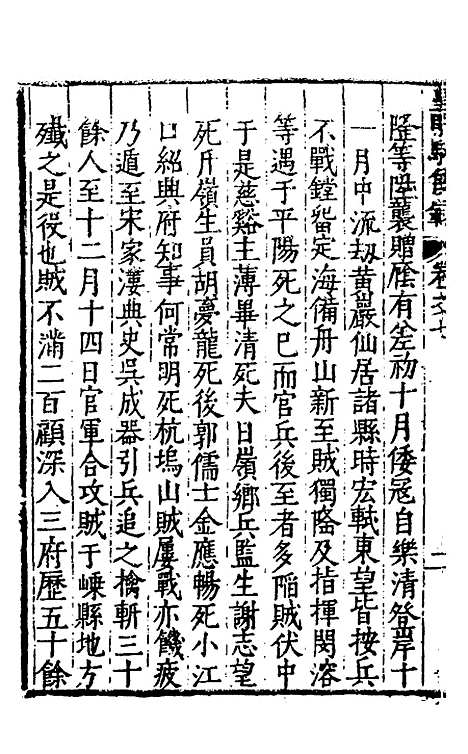 隆等陞襲贈廕有差初十月倭寇自樂清登岸十
一月中流刼黃巖仙居諸縣時宏軾東望皆按兵
不戰鏜畱定海備舟山新至賊獨隆及指揮閔溶
等遇于平陽死之巳而官兵後至者多陷賊伏中
于是慈谿主薄畢清死夫日嶺鄉兵監生謝志望
死斤嶺生員胡夢龍死後郭儒士金應暢死小江
口紹興府知事何常明死杭塢山賊屢戰亦饑疲
乃遁至宋家漊典史吳成器引兵追之擒斬三十
餘人至十二月十四日官軍合攻賊于嵊縣地方
殲之是役也賊不滿二百顧深入三府歷五十餘